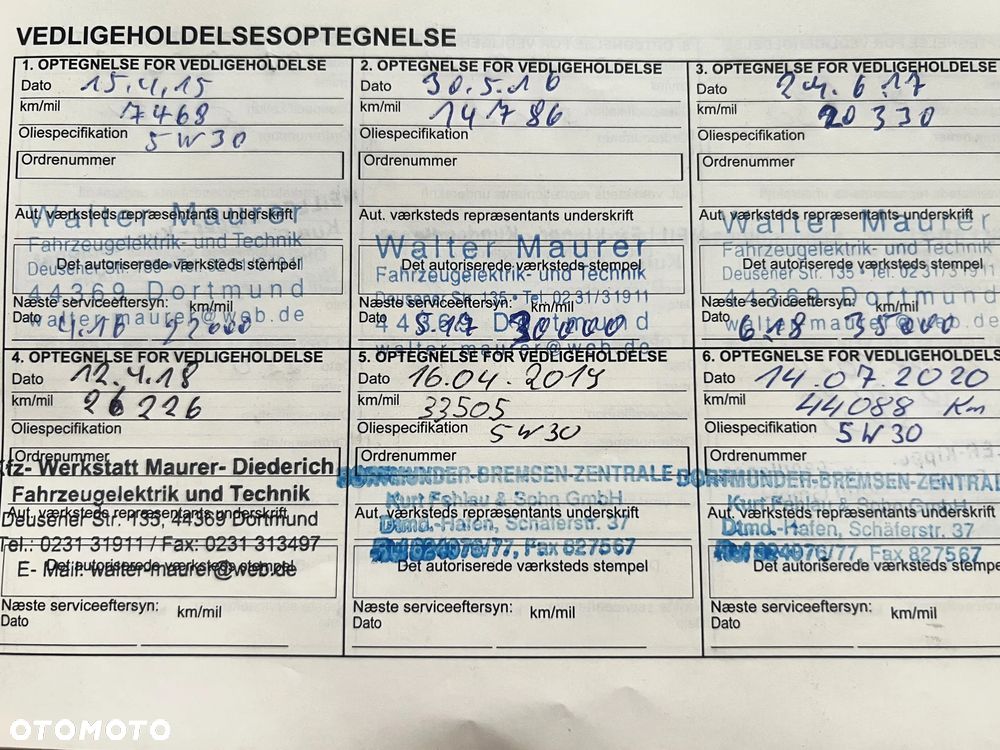 VEDLIGEHOLDELSESOPTEGNELSE
1. OPTEGNELSE FOR VEDLIGEHOLDELSE
Dato 15.4.15
km/mil 7468
Oliespecifikation 5W30
Ordrenummer
Walter Maurer
Aut. værksteds repræsentants underskrift
Fahrzeugelektrik- und Technik
Det autoriserede værksteds stempel
Deusener Str. 02 31/3 19 11
44369 Dortmund
Næste serviceeftersyn: km/mil
walter-maurer@web.de
Dato 4.16 22000
2. OPTEGNELSE FOR VEDLIGEHOLDELSE
Dato 30.5.16
km/mil 14786
Oliespecifikation
Ordrenummer
Aut. værksteds repræsentants underskrift
Walter Maurer
Det autoriserede værksteds stempel
Fahrzeugelektrik- und Technik
Deusener Str. 135 • Tel. 02 31/3 19 11
Næste serviceeftersyn: km/mil
44369 Dortmund
Dato 5.17 30000
walter-maurer@web.de
3. OPTEGNELSE FOR VEDLIGEHOLDELSE
Dato 24.6.17
km/mil 20330
Oliespecifikation
Ordrenummer
Aut. værksteds repræsentants underskrift
Walter Maurer
Fahrzeugelektrik- und Technik
Det autoriserede værksteds stempel
Deusener Str. 135 • Tel. 02 31/3 19 11
44369 Dortmund
Næste serviceeftersyn: km/mil
walter-maurer@web.de
Dato 6.18 38000
4. OPTEGNELSE FOR VEDLIGEHOLDELSE
Dato 12.4.18
km/mil 26226
Oliespecifikation
Ordrenummer
fz- Werkstatt Maurer- Diederich
Fahrzeugelektrik und Technik
Aut. værksteds repræsentants underskrift
Deusener Str. 135, 44369 Dortmund
Tel.: 0231 31911 / Fax: 0231 313497
Det autoriserede værksteds stempel
E- Mail: walter-maurer@web.de
Næste serviceeftersyn: km/mil
Dato
5. OPTEGNELSE FOR VEDLIGEHOLDELSE
Dato 16.04.2019
km/mil 33505
Oliespecifikation 5W30
Ordrenummer
DORTMUNDER-BREMSEN-ZENTRALE
Kurt Fehlau & Sohn GmbH
Aut. værksteds repræsentants underskrift
Dtmd.-Hafen, Schäferstr. 37
824076/77, Fax 827567
Det autoriserede værksteds stempel
Næste serviceeftersyn: km/mil
Dato
6. OPTEGNELSE FOR VEDLIGEHOLDELS
Dato 14.07.2020
km/mil 44088 Km
Oliespecifikation 5W30
Ordrenummer
DORTMUNDER-BREMSEN-ZENTRAL
Kurt GmbH
Aut. værksteds repræsentants underskrift
Dtmd.-Hafen, Schäferstr. 37
824076/77, Fax 827567
Det autoriserede værksteds stempel
Næste serviceeftersyn: km/mil
Dato
OTOMOTO